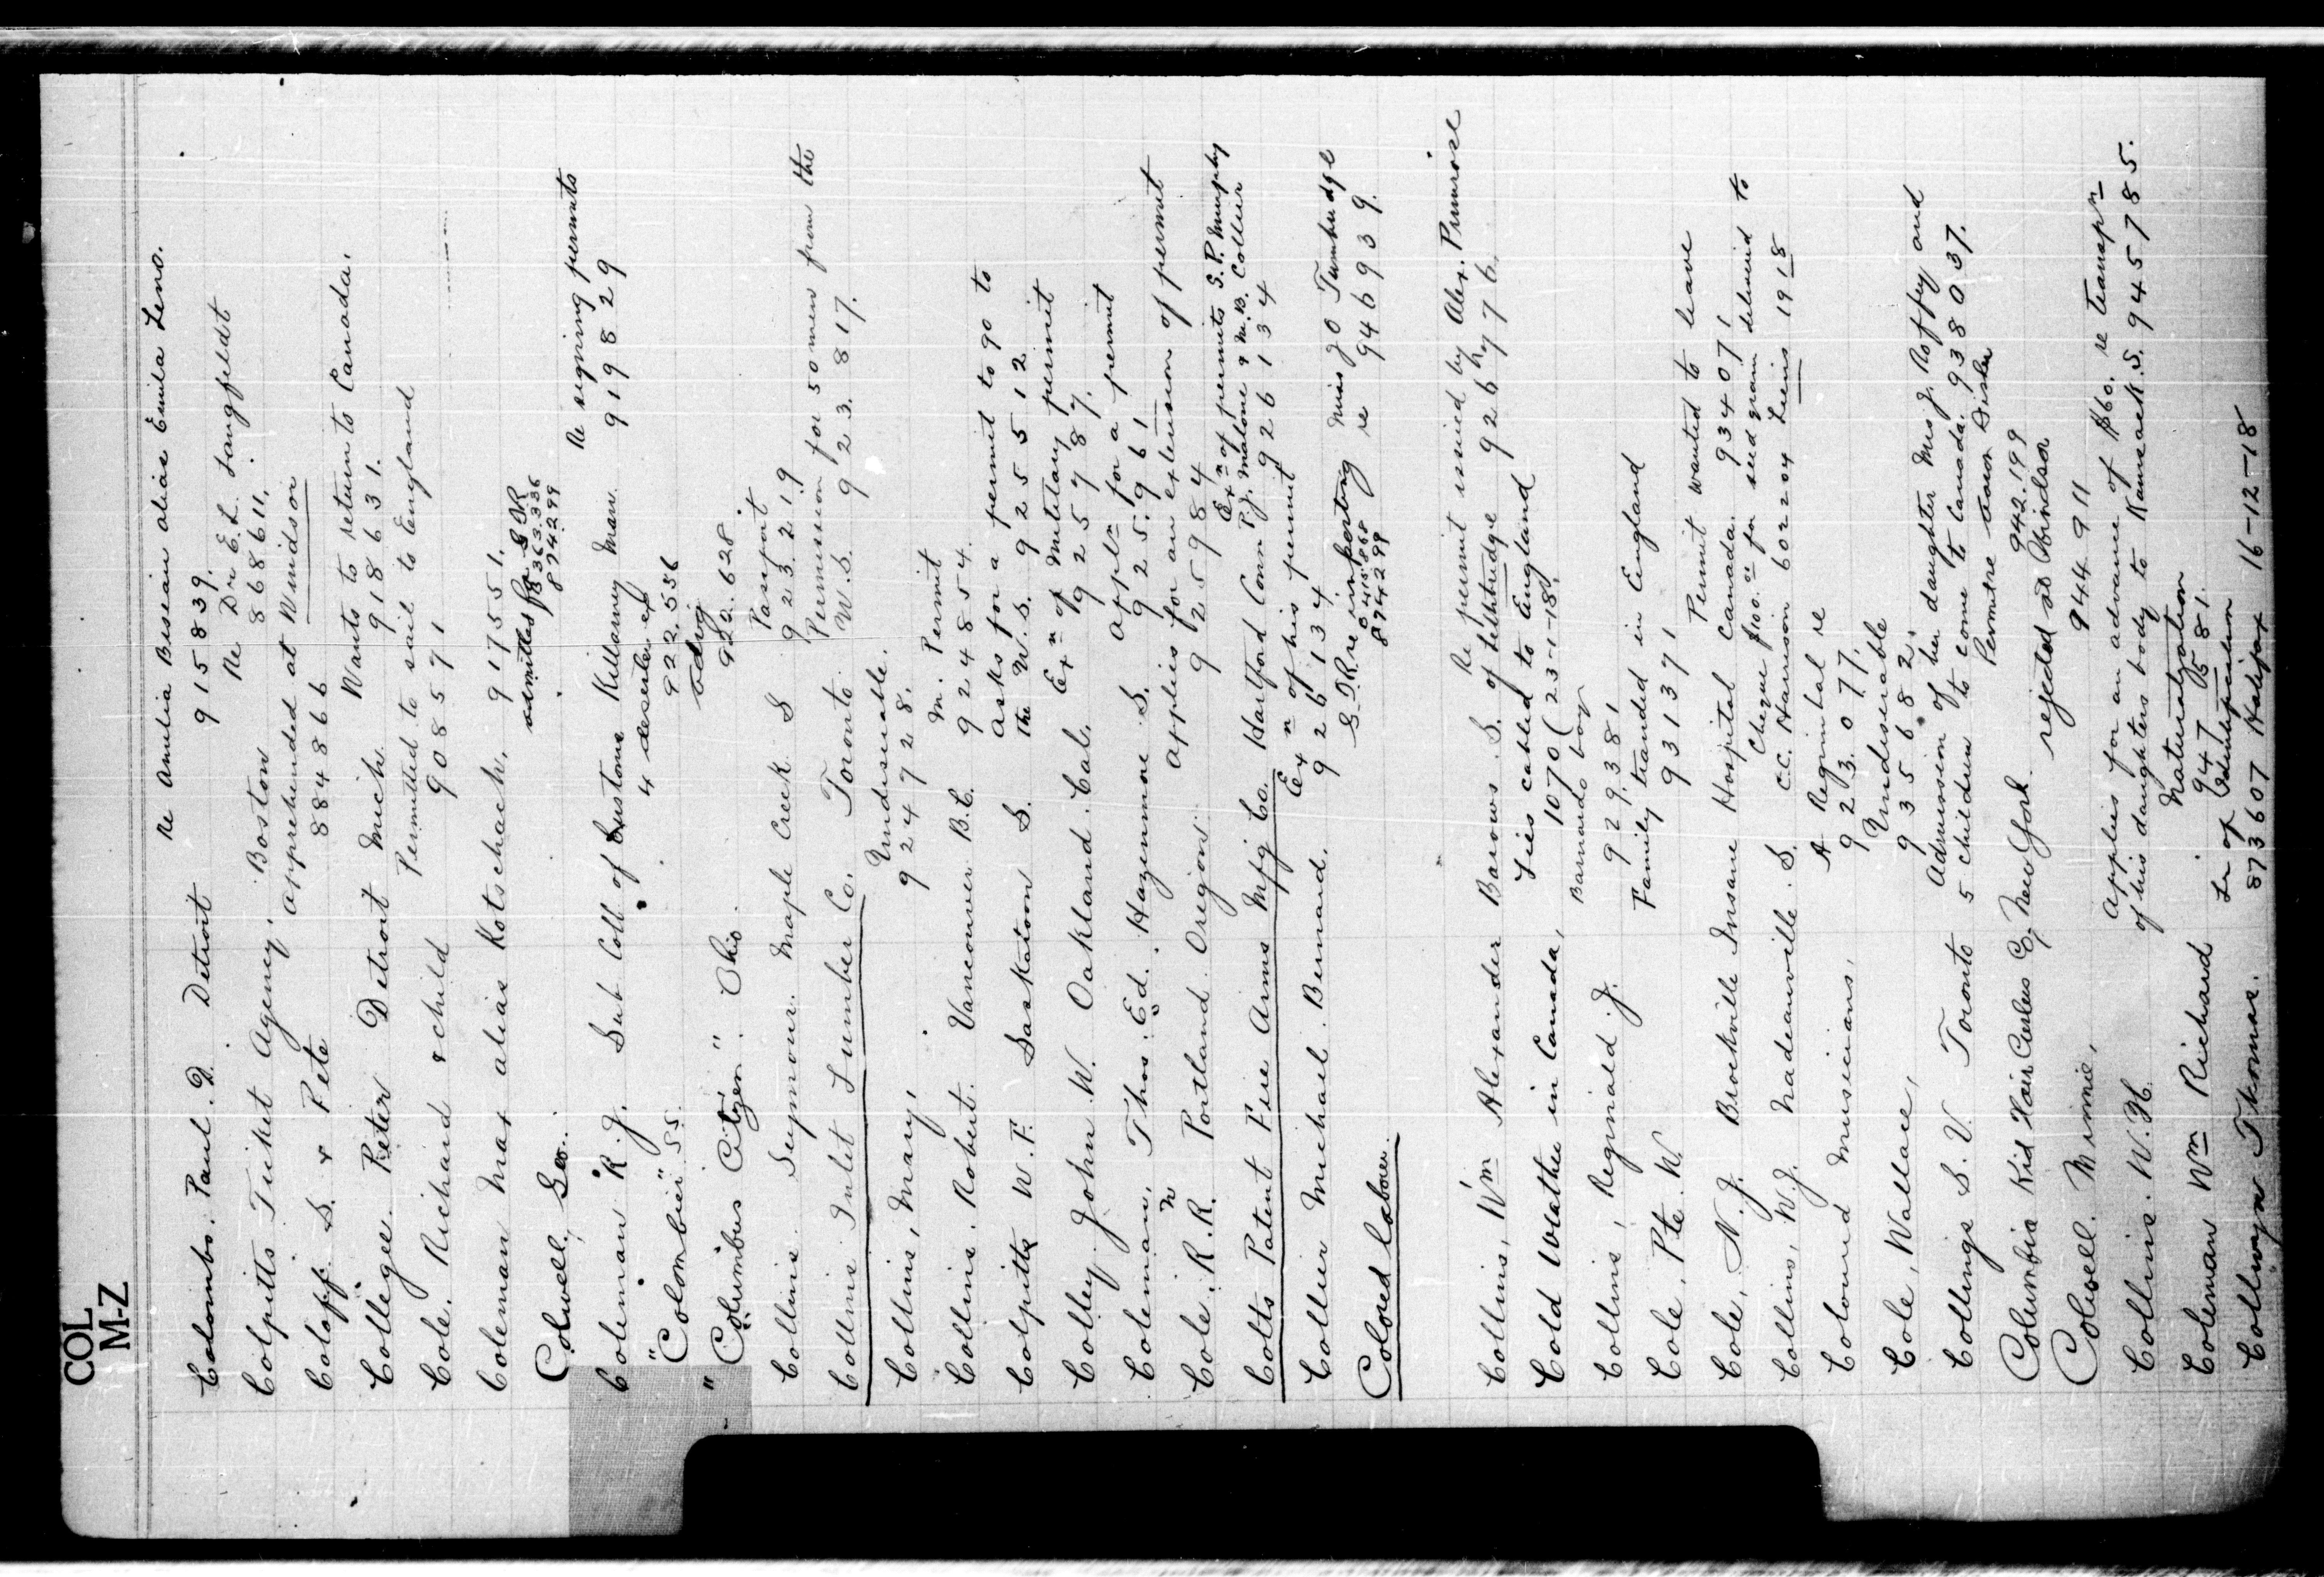 COL
M-Z
Re Amelia Bissian alias Emila Leno.
Colombo. Paul. D. Detroit 915839.
Re Dr E. L. Langfeldt
Colpitts Ticket Agency. Boston 868611.
apprehended at Windsor
Coloff. S. & Pete 884866
Wants to return to Canada.
Collegee. Peter Detroit Mich. 918631.
Permitted to sail to England
Cole. Richard & child 908571
Coleman Max alias Kotschach. 917551.
Colwell, Geo.
863363.336
874299
Re signing permits
Coleman R. J. Sub Coll of Customs Killarney Man. 919829
4 deserters ex
"Colombier" SS. 922.556
"Columbus Citizen" Ohio. 922.628.
Passport
Collins. Seymour. Maple Creek S 923.219
Permission for 50 men from the
Collins Inlet Lumber Co. Toronto. W.S. 923.817.
Undesirable.
Collins, Mary, 924728.
M. Permit
Collins. Robert. Vancouver B.C. 924854.
Asks for a permit to go to
Colpitts W. F. Saskatoon S. the W.S. 925512
Exn of Military permit
Colley. John W. Oakland. Cal. 925787.
appln for a permit
Coleman, Thos. Ed. Hazenmore S. 925.961
applies for an extension of permit
Cole. R. R. Portland Oregon. 925984
Exn of permits S. P. Murphy
Colts Patent Fire Arms Mfg Co. Hartford Conn P. J. Malone & M. B. Collier 926134
Exn of his permit
Collier Michael Bernard. 926134
S.O.R. re importing Miss J O Tunbridge
Colored Labour. 0415868 re 946939.
874299
Re permit issued by Alex. Primrose
Collins, Wm Alexander Barons S. of Lethbridge 926776
Lies cabled to England
Cold Weather in Canada, 1070 (23-1-18.
Barnardo boy
Collins, Reginald J. 929.381
Family stranded in England
Cole, Pte. W. 931371
Permit wanted to leave
Cole, N. J. Brockville Insane Hospital Canada. 934071
Cheque $100.00 for seed grain delivered to
Collins, W. J. Nadeauville. S. C.C. Harrison 602204 Liens 1918
A Regimbal re
Coloured Musicians, 923.077.
Undesirable
Cole, Wallace, 935682.
Admission of her daughter Mrs J. Roffey and
Collings S. V. Toronto 5 children to come to Canada. 938037.
Columbia Kid Hair Curlers Co, New York. 942.199
rejected at Windsor
Colwell. Minnie, 944911
Applies for an advance of $60. re transpn
Collins. W. H. of his daughters body to Kamsack. S. 945785.
Naturalization
Coleman Wm Richard 947581.
Lr of Identification
Collwyn Thomas. 873607 Halifax 16-12-18